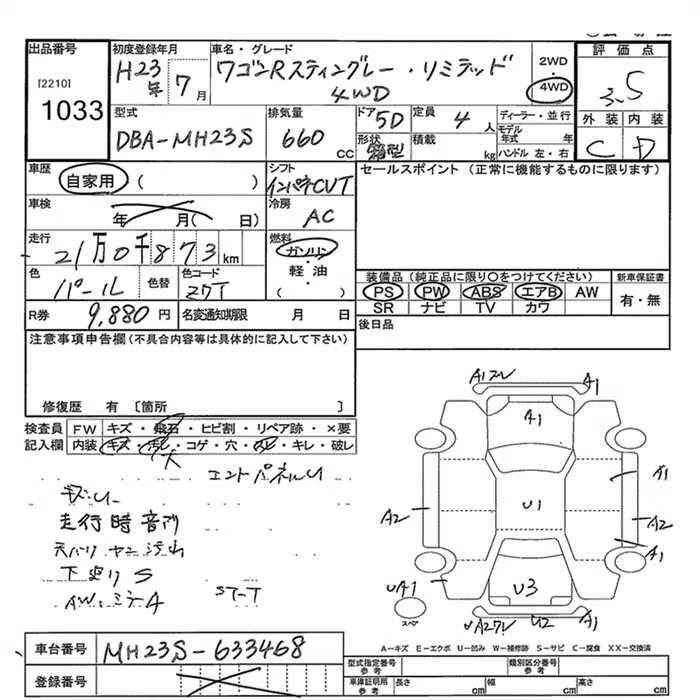 出品番号 初度登録年月 車名・グレード 評価点
[2210] H23年 7月 ワゴンRスティングレー・リミテッド 2WD
1033 4WD 4WD 3.5
型式 排気量 ドア 5D 定員 4人 ディーラー・並行 外装 内装
DBA-MH23S 660 CC 形状 箱型 積載 kg モデル年式 年 C D
ハンドル 左・右
車歴 自家用 ( ) シフト インパネCVT セールスポイント (正常に機能するものに限ります)
車検 年 月( 日) 冷房 AC
走行 21万0千873km 燃料 ガソリン・軽油・( )
色 パール 色替 色コード Z7T 装備品 (純正品に限り○をつけてください) 新車保証書
PS PW ABS エアB AW 有・無
R券 9,880円 名変通知期限 月 日 SR ナビ TV カワ
注意事項申告欄(不具合内容等は具体的に記入して下さい) 後日品
修復歴 有 〔箇所 〕
検査員 FW キズ・飛石・ヒビ割・リペア跡・×要
記入欄 内装 キズ・汚レ・コゲ・穴・スレ・キレ・破レ
大
走行時音所
下廻りS
A1 A1
A1
A1
U1
A2 A2
A1
UA1 U3
スペ U2 A1
A-キズ E-エクボ U-凹み W-補修跡 S-サビ C-腐食 XX-交換済
車台番号 MH23S-633468 型式指定番号 参考 類別区分番号 参考
登録番号 車庫証明所 参考 長さ cm 幅 cm 高さ cm